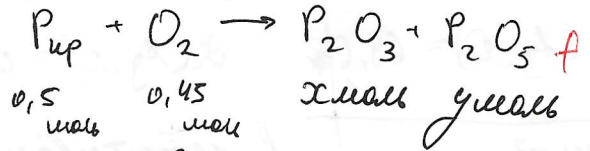 Pкр + O₂ → P₂O₃ + P₂O₅
0,5 моль 0,45 моль x моль y моль